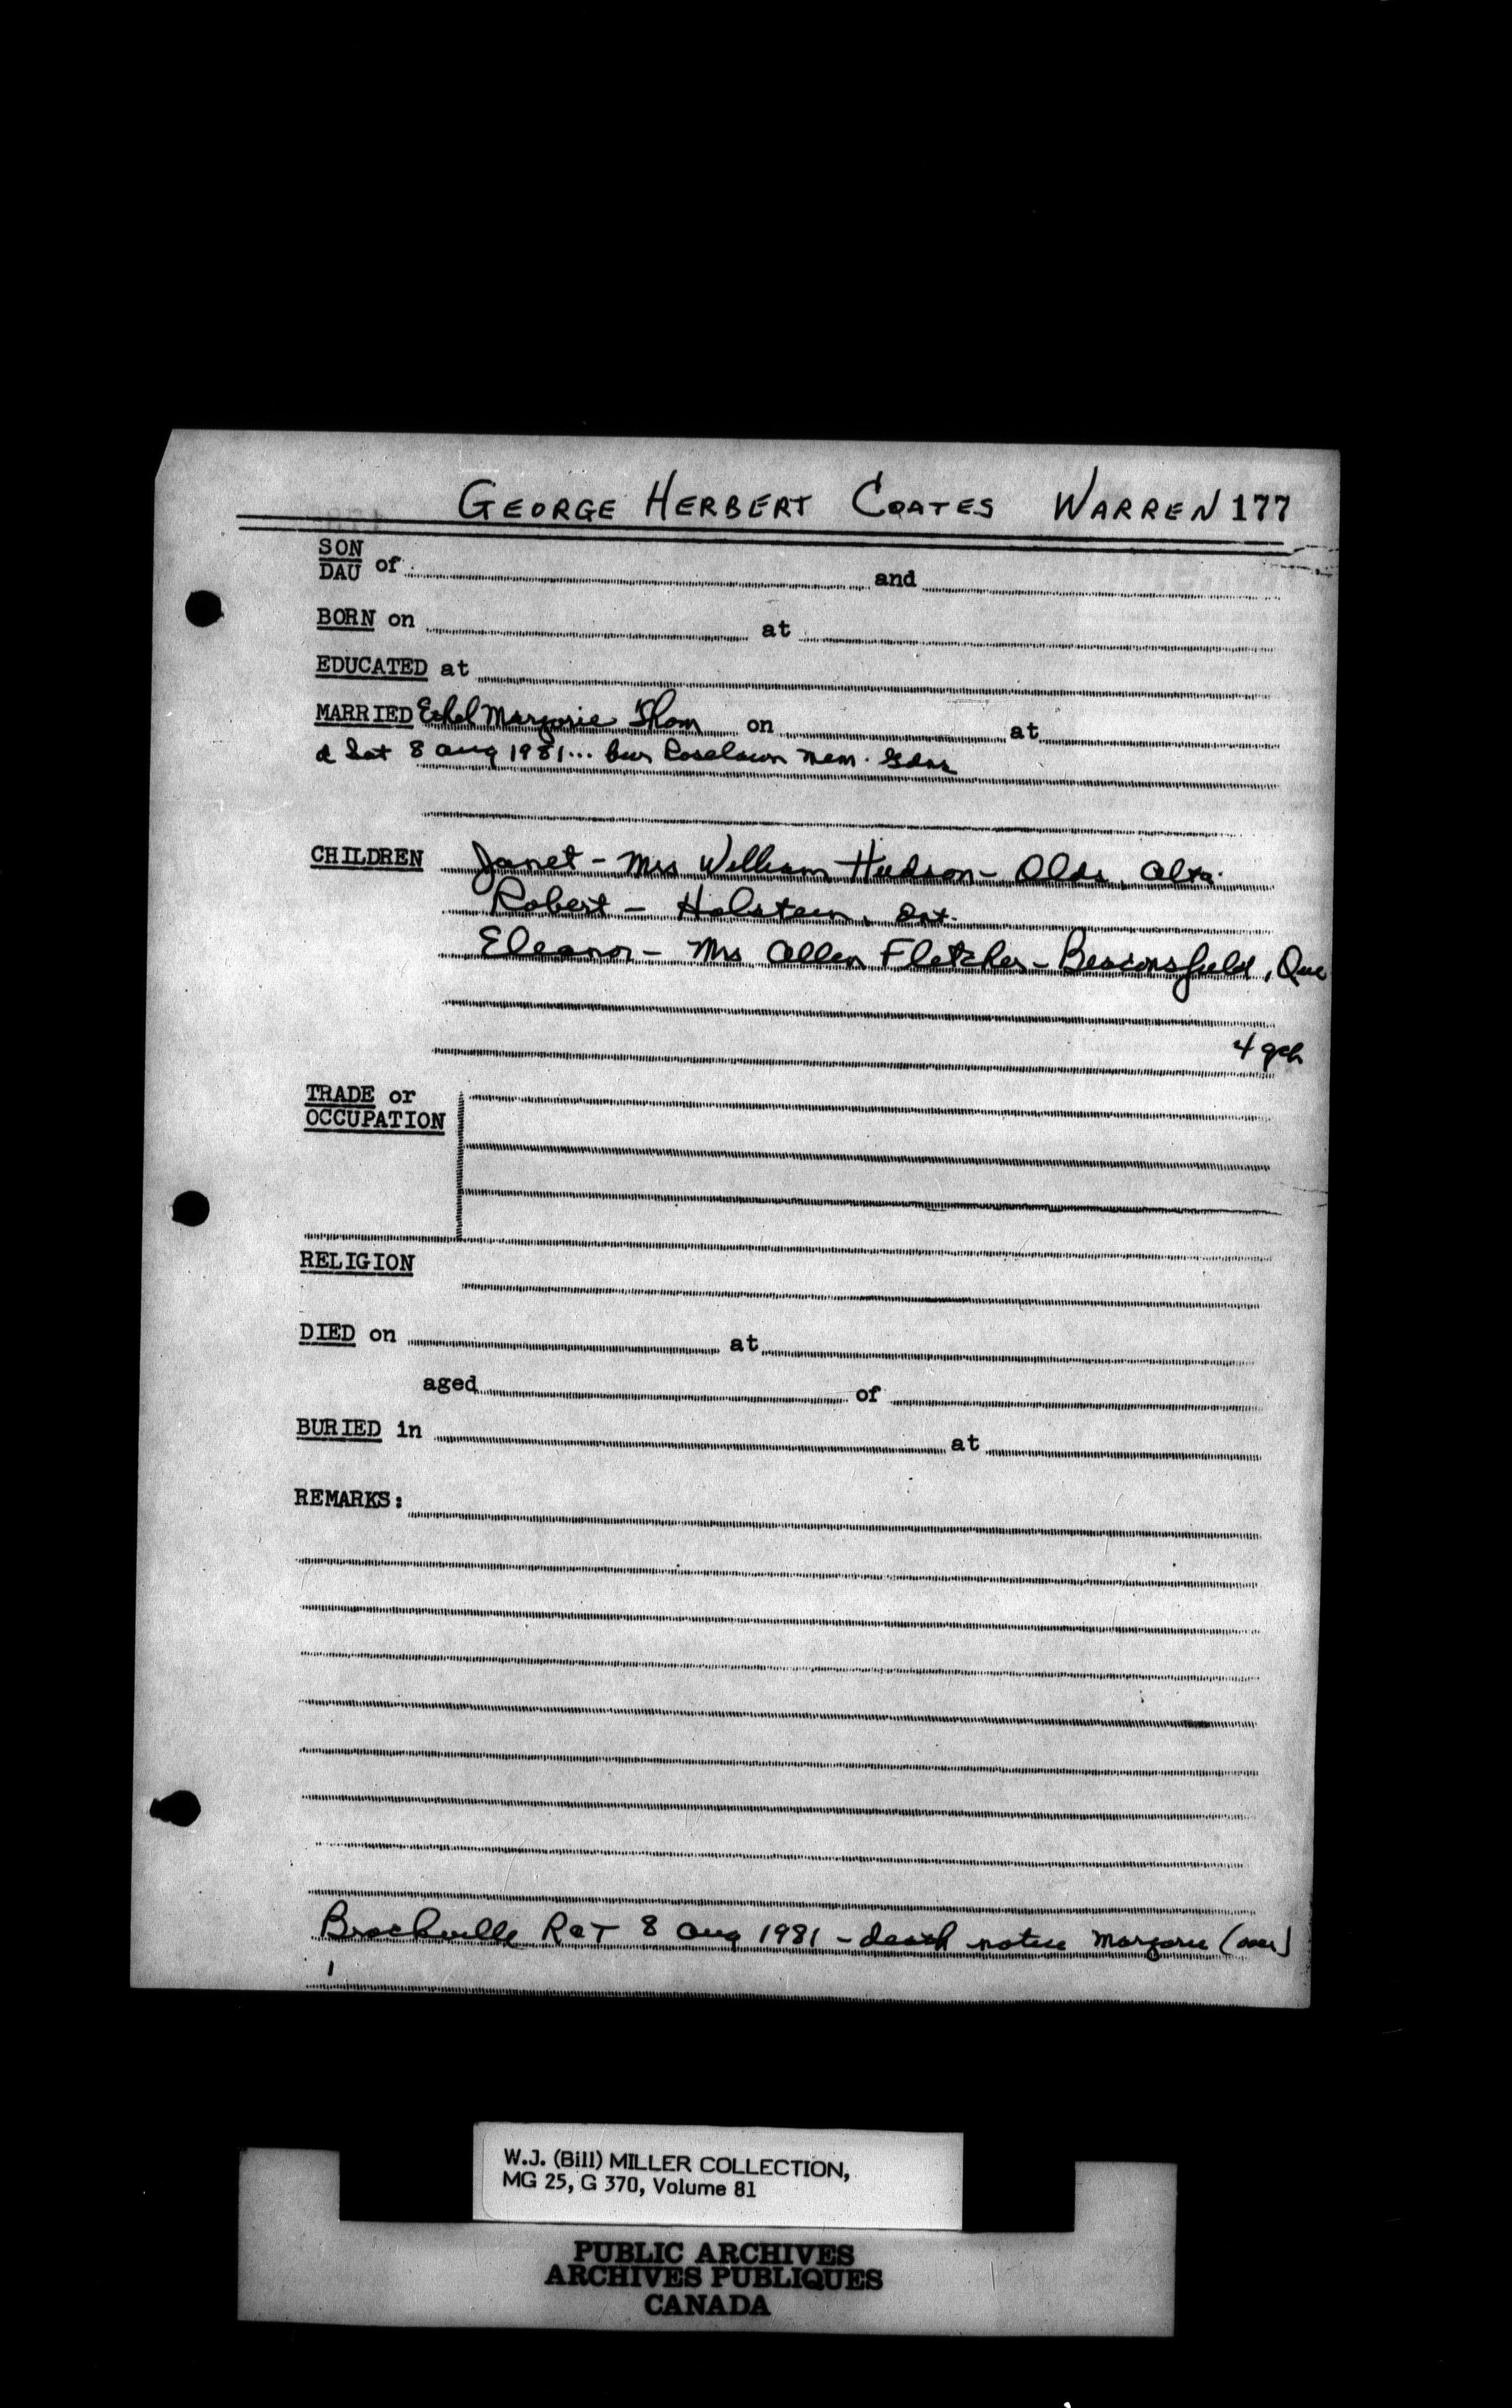 GEORGE HERBERT COATES WARREN 177
SON
DAU of and
BORN on at
EDUCATED at
MARRIED Ethel Marjorie Thom on at
d Sat 8 Aug 1981... bur Roselawn Mem. Gdns
CHILDREN Janet - Mrs William Hudson - Olds, Alta.
Robert - Holstein, Ont.
Eleanor - Mrs Allen Fletcher - Beaconsfield, Que
4 gch
TRADE or
OCCUPATION
RELIGION
DIED on at
aged of
BURIED in at
REMARKS:
Brockville R&T 8 Aug 1981 - death notice Marjorie (over)
W.J. (Bill) MILLER COLLECTION,
MG 25, G 370, Volume 81
PUBLIC ARCHIVES
ARCHIVES PUBLIQUES
CANADA